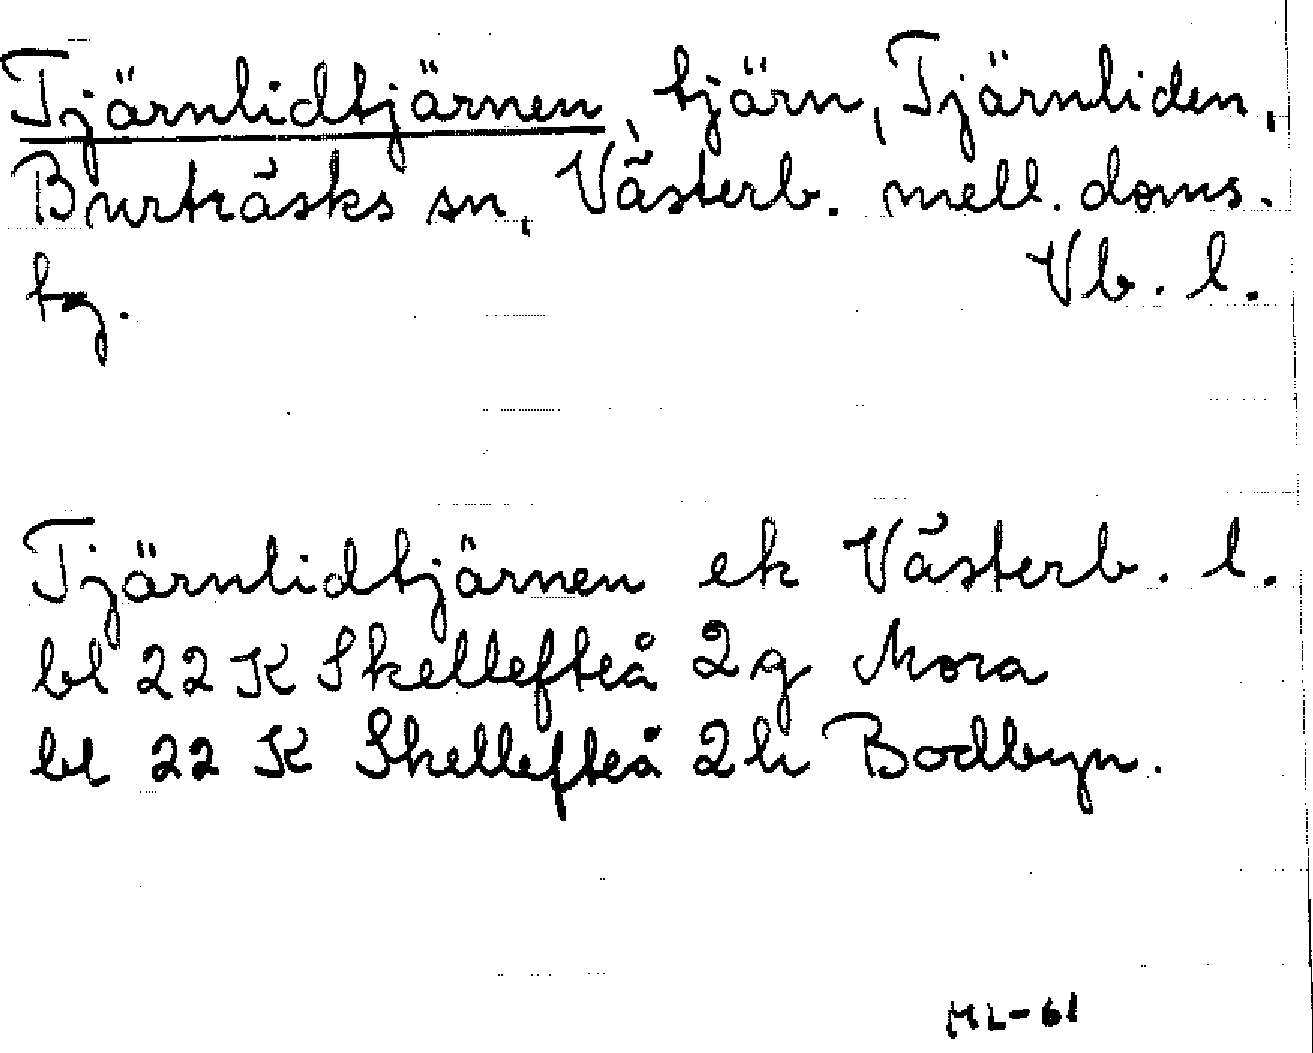 Tjärnlidtjärnen, tjärn, Tjärnliden,
Burträsks sn, Västerb. mell. doms.
tg. Vb. l.
Tjärnlidtjärnen ek Västerb. l.
bl 22 K Skellefteå 2g Mora
bl 22 K Skellefteå 2h Bodbyn.
ML-61